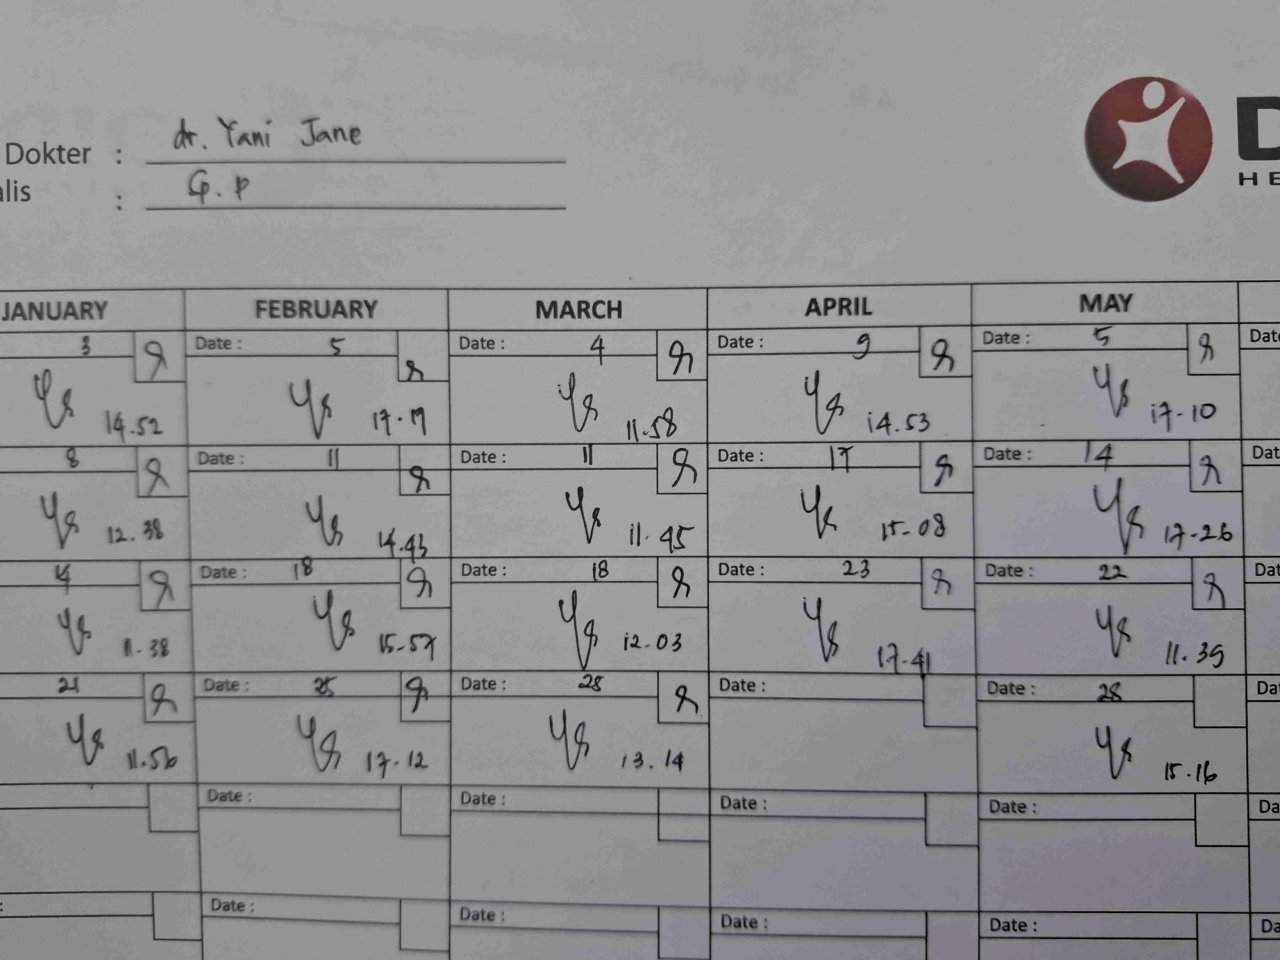 Dokter : dr. Yani Jane
alis : G.P
D
HE
JANUARY FEBRUARY MARCH APRIL MAY
3 Date : 5 Date : 4 Date : 9 Date : 5 Dat
14.52 11.58 14.53 17-10
8 Date : 11 Date : 11 Date : 17 Date : 14 Dat
12.38 14.43 11.45 15-08 17-26
Date : 18 Date : 18 Date : 23 Date : 22 Dat
11-38 15-57 12.03 17-41 11.39
21 Date : 25 Date : 25 Date : Date : 28 Da
11.56 17-12 13.14 15.16
Date : Date : Date : Date : Da
: Date : Date : Date : Date : Da